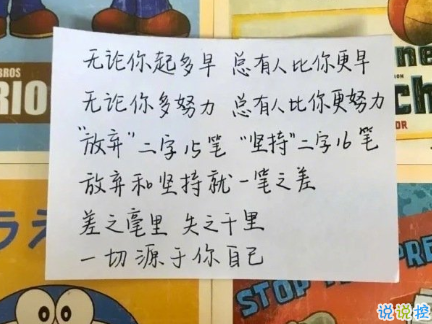 无论你起多早 总有人比你更早
无论你多努力 总有人比你更努力
"放弃"二字15笔 "坚持"二字16笔
放弃和坚持就一笔之差
差之毫里 失之千里
一切源于你自己
BROS
RIO
ne
ch
DOR
STOP
PRE
说说控